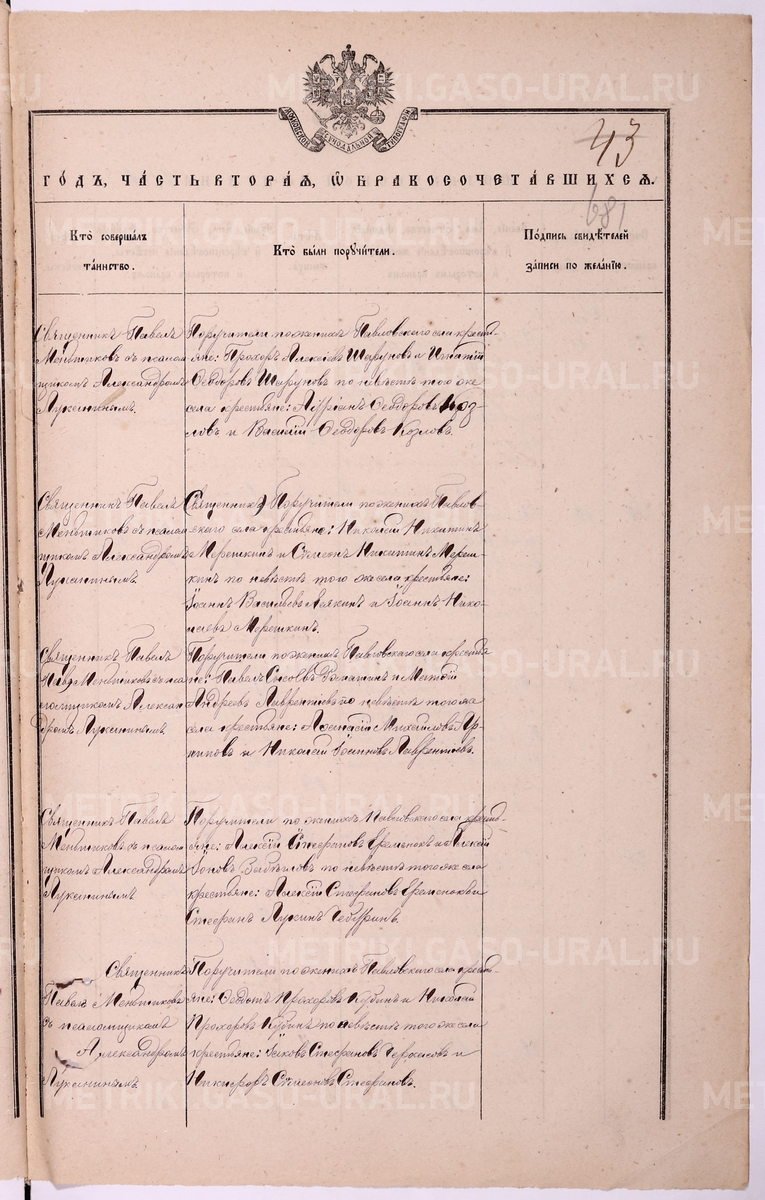 METRIKI.GASO-URAL.RU
МОСКОВСКОЙ СѴНОДАЛЬНОЙ ТИПОГРАФІИ
43
ГОДЪ, ЧАСТЬ ВТОРАЯ, Ѡ БРАКОСОЧЕТАВШИХСЯ.
681
Кто совершалъ
таинство.
Кто были поручители.
Подпись свидѣтелей
записи по желанію.
Священникъ Павелъ
Меньшиковъ съ псалом
щикомъ Александромъ
Лукининымъ.
Поручители по женихѣ Павловскаго села крестья
яне: Прохоръ Алексѣевъ Шаруновъ и Игнатій
Ѳеодоровъ Шаруновъ по невѣстѣ того же
села крестьяне: Ѳеодоровъ Коз
ловъ и Василій Ѳеодоровъ Козловъ.
Священникъ Павелъ
Меньшиковъ съ псалом
щикомъ Александромъ
Лукининымъ
Священник) Поручители по женихѣ Павлов
скаго села крестьяне: Николай Никитинъ
Мерешкинъ и Симеонъ Никитинъ Мереш
кинъ по невѣстѣ того же села крестьяне:
Іоаннъ Васильевъ и Іоаннъ Нико
лаевъ Мерешкинъ.
Священникъ Павелъ
Меньшиковъ съ пса
ломщикомъ Алексан
дромъ Лукининымъ
Поручители по женихѣ Павловскаго села крестья
не: Павелъ Сысоевъ и Матѳій
Андреевъ Лаврентьевъ по невѣстѣ того же
села крестьяне: Михайловъ Ар
хиповъ и Николай Лаврентьевъ.
Священникъ Павелъ
Меньшиковъ съ псалом
щикомъ Александромъ
Лукининымъ
Поручители по женихѣ Павловскаго села кресть
яне: Алексій Стефановъ и
по невѣстѣ того же села
крестьяне: Алексій Стефановъ и
Стефанъ Лукинъ Чебуринъ.
Священникъ
Павелъ Меньшиковъ
съ псаломщикомъ
Александромъ
Лукининымъ
Поручители по женихѣ Павловскаго села кресть
яне: Ѳедотъ Прохоровъ Кубинъ и Николай
Прохоровъ Кубинъ по невѣстѣ того же села
крестьяне: Іаковъ Стефановъ Черкасовъ и
Никифоръ Симеоновъ Стефановъ.